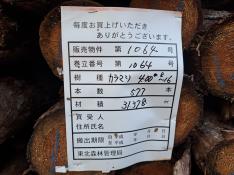 毎度お買上げいただき
ありがとうございます。
販売物件 第1064号
巻立番号 第1064号
樹種 カラマツ 400
本数 577
材積 31.378
買受人
住所氏名
搬出期限
東北森林管理局